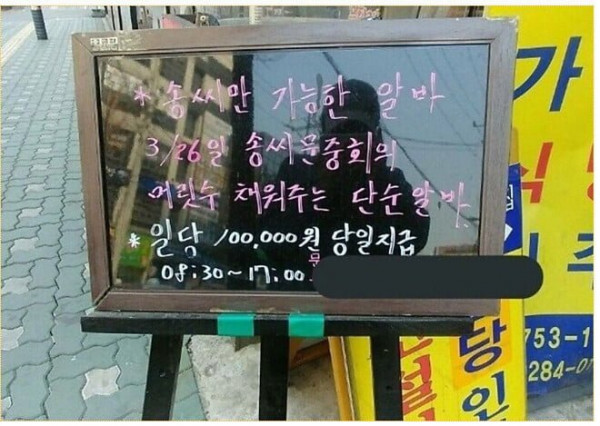 * 송씨만 가능한 알바
3/26일 송씨문중회의
머릿수 채워주는 단순알바.
* 일당 100,000원 당일지급
08:30~17:00
가
식
당
주
753-1
284-0
당
인